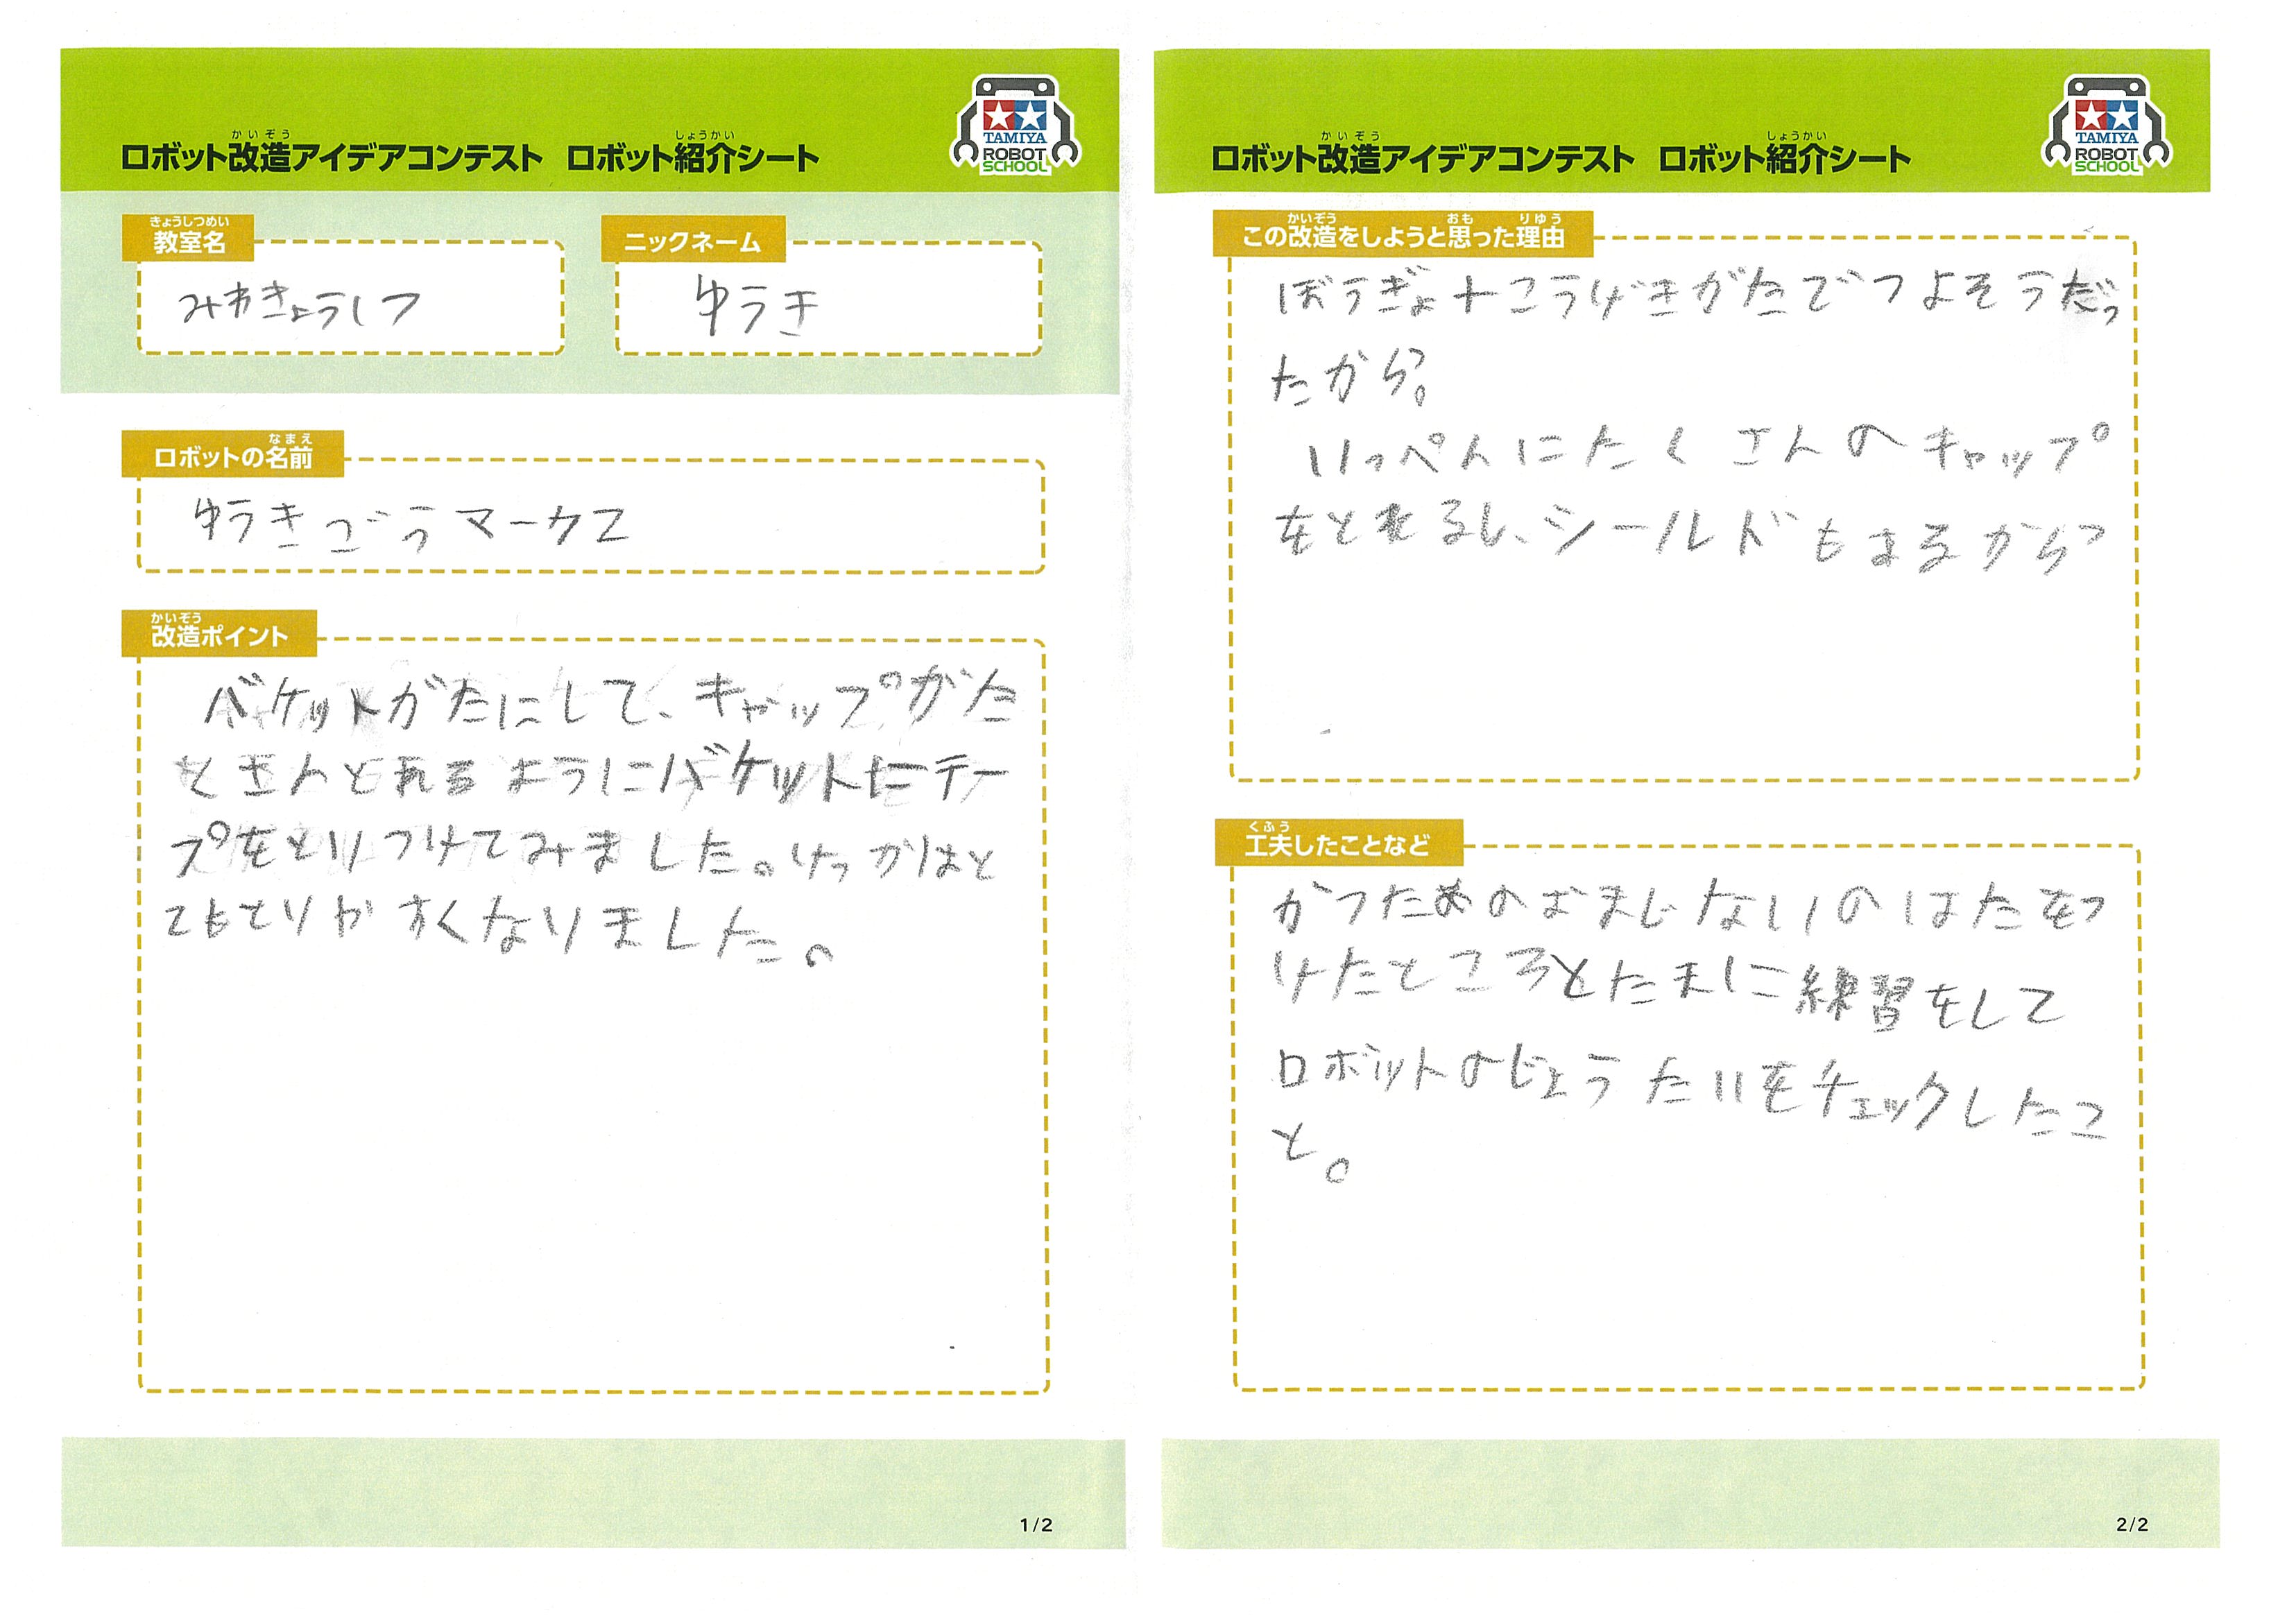 かいぞう しょうかい
ロボット改造アイデアコンテスト ロボット紹介シート
TAMIYA
ROBOT
SCHOOL
きょうしつめい
教室名
みわきょうしつ
ニックネーム
ゆうき
なまえ
ロボットの名前
ゆうきごうマーク2
かいぞう
改造ポイント
バケットがたにして、キャップがた
くさんとれるようにバケットにテー
プをとりつけてみました。けっかはと
てもとりやすくなりました。
1/2
かいぞう しょうかい
ロボット改造アイデアコンテスト ロボット紹介シート
TAMIYA
ROBOT
SCHOOL
かいぞう おも りゆう
この改造をしようと思った理由
ぼうぎょ+こうげきがたでつよそうだっ
たから。
いっぺんにたくさんのキャップ
をとれるし、シールドもはるから
くふう
工夫したことなど
かつためのおまじないのはたをつ
けたところとたまに練習をして
ロボットのじょうたいをチェックしたこ
と。
2/2